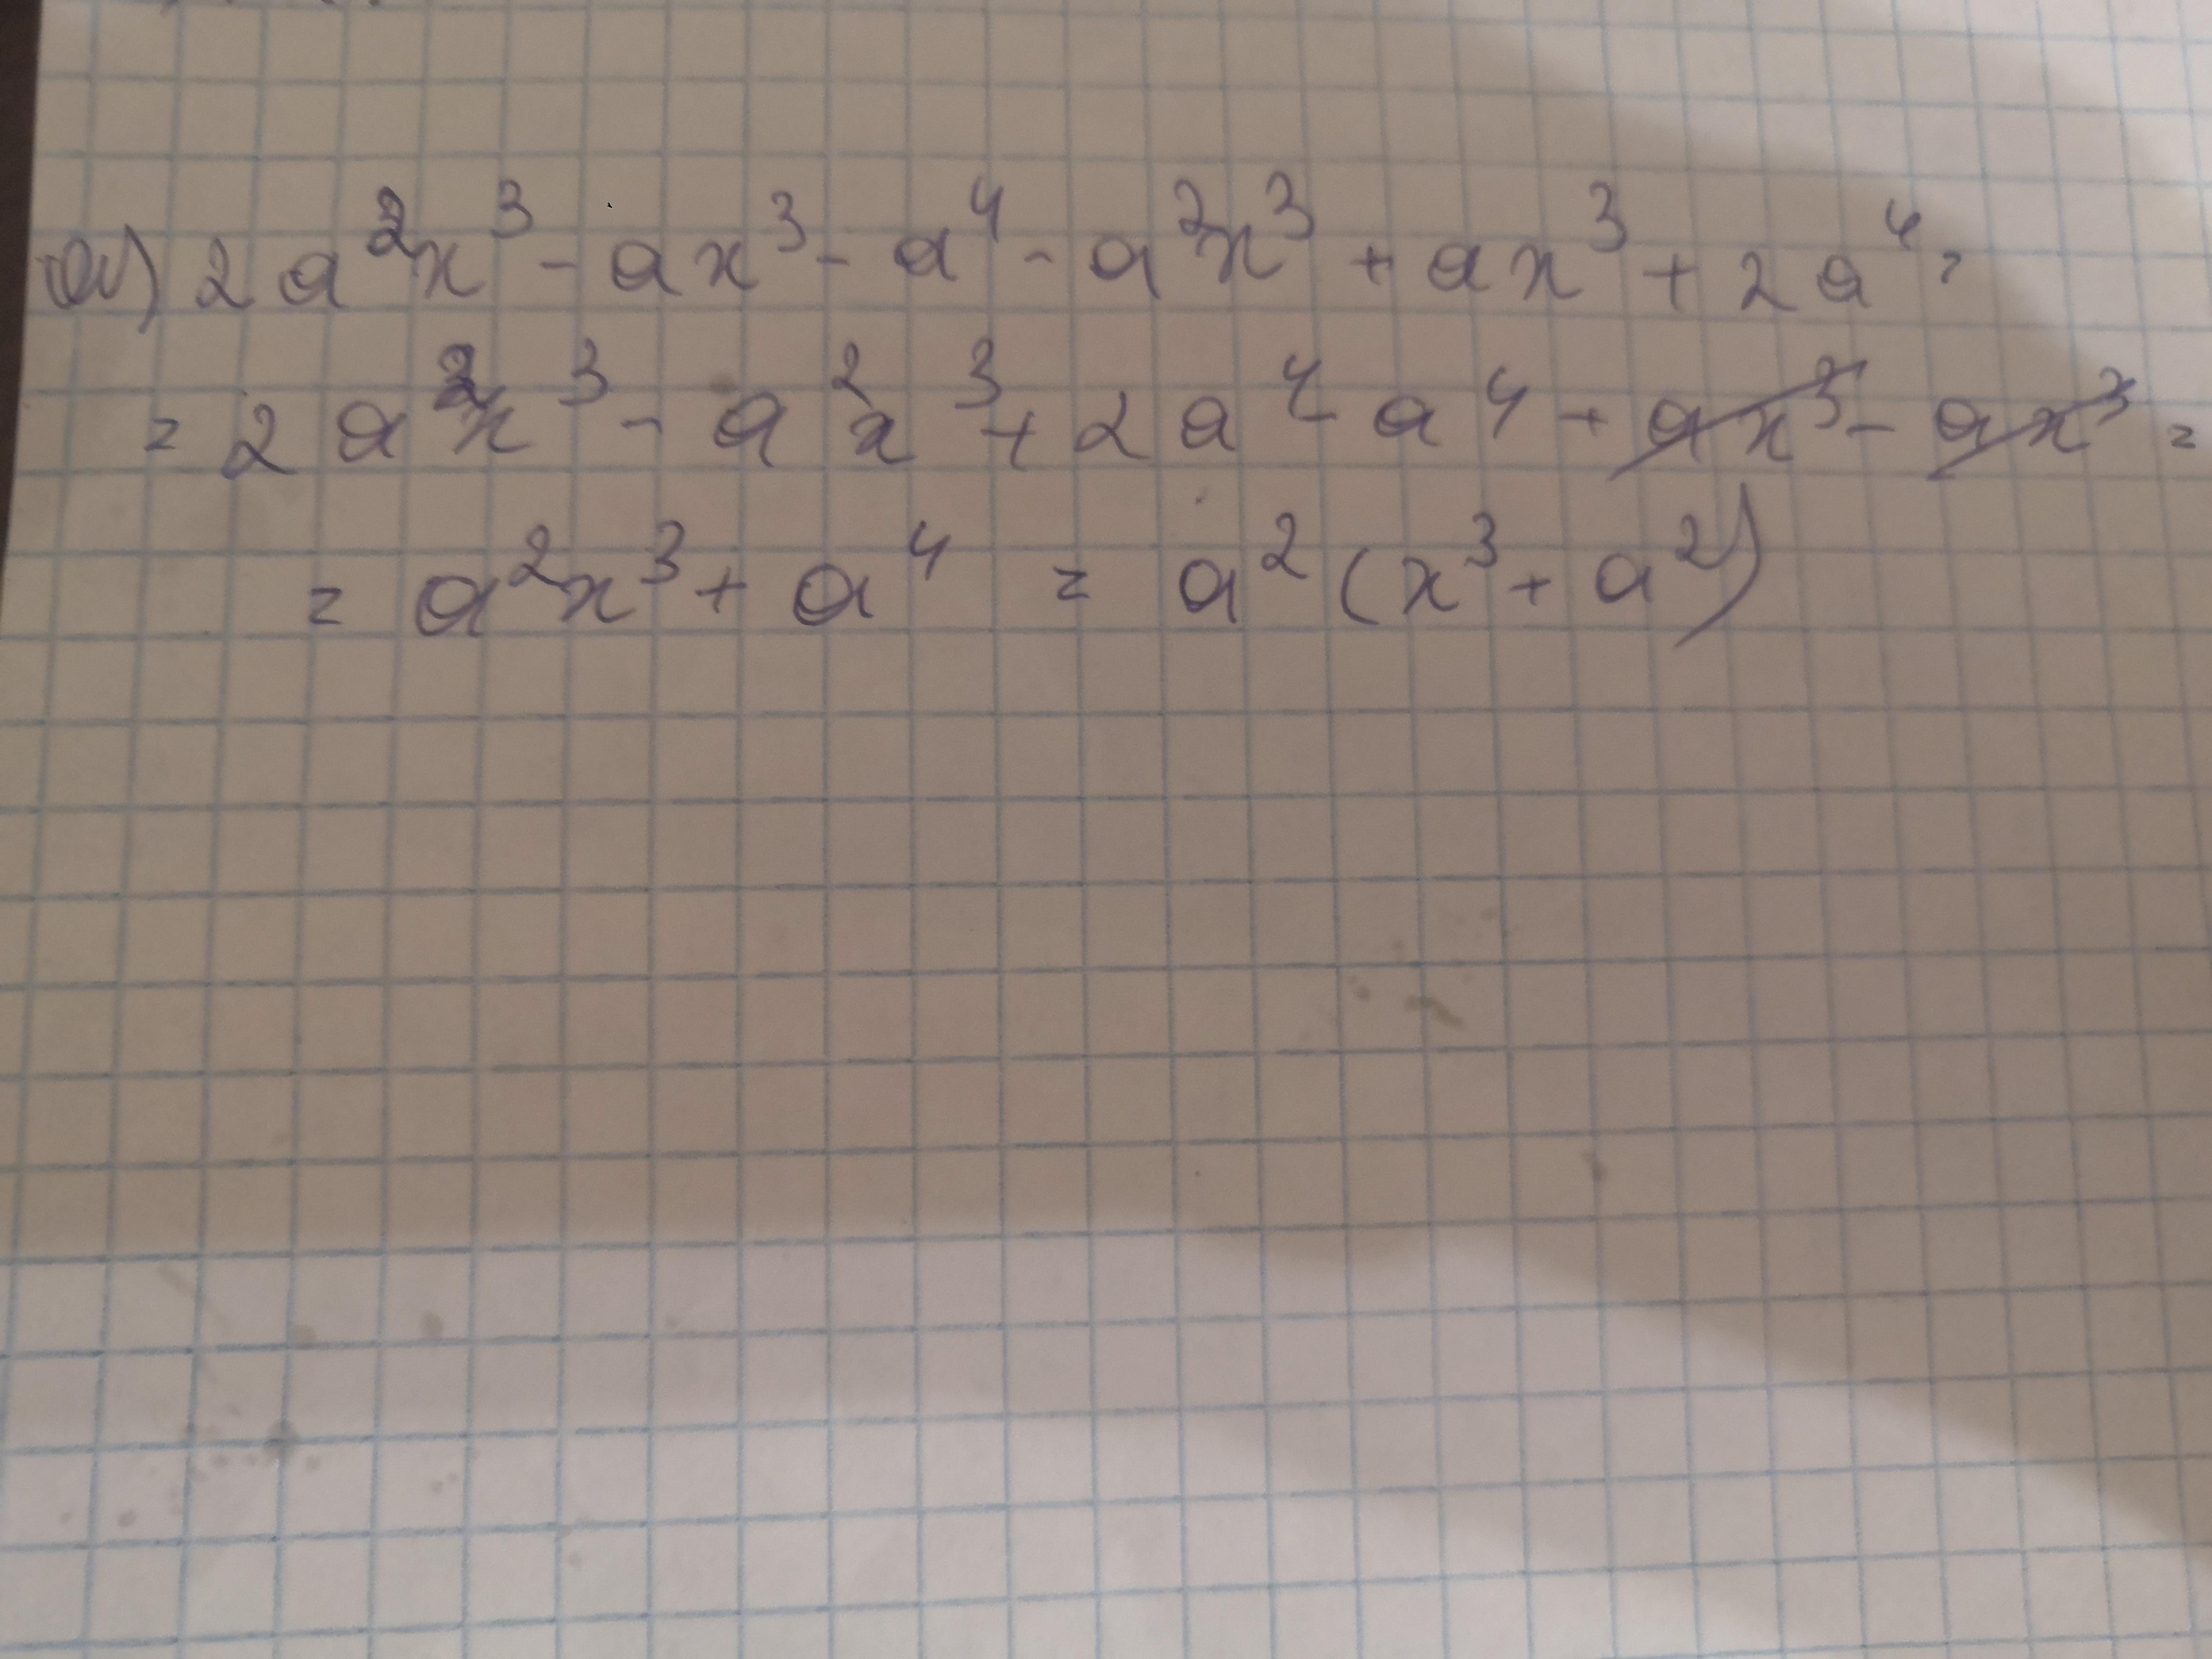 а) 2a²x³ - ax³ - a⁴ - a²x³ + ax³ + 2a⁴ =
= 2a²x³ - a²x³ + 2a⁴ - a⁴ + ax³ - ax³ =
= a²x³ + a⁴ = a²(x³ + a²)